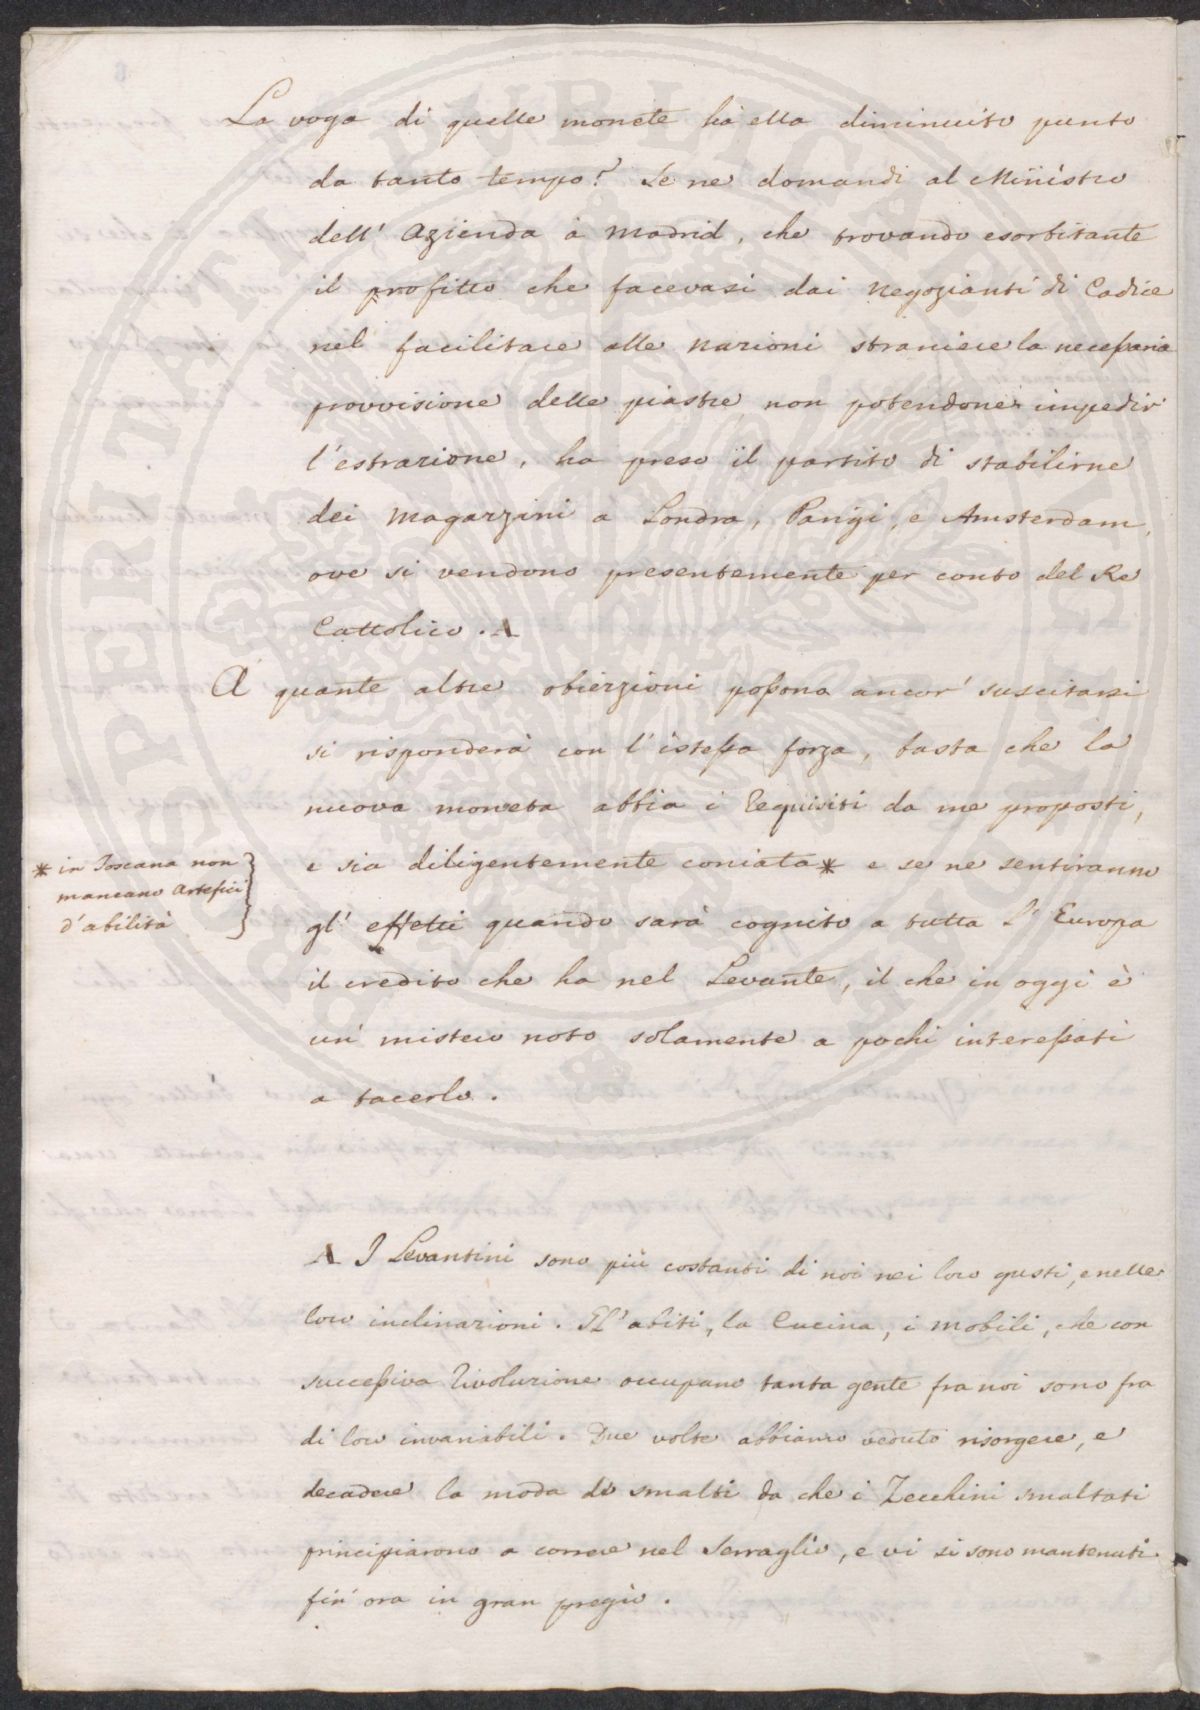 La voga di quelle monete ha ella diminuito punto
da tanto tempo? Se ne domandi al Ministro
dell' Azienda a Madrid, che trovando esorbitante
il profitto che facevasi dai Negozianti di Cadice
nel facilitare alle nazioni straniere la necessaria
provvisione delle piastre non potendone impedir
l'estrazione, ha preso il partito di stabilirne
dei Magazzini a Londra, Parigi, e Amsterdam,
ove si vendono presentemente per conto del Re
Cattolico. Λ
A quante altre obiezzioni possono ancor' suscitarsi
si risponderà con l'istessa forza, basta che la
nuova moneta abbia i Requisiti da me proposti,
e sia diligentemente coniata* e se ne sentiranno
* in Toscana non
mancano Artefici
d'abilità
gl' effetti quando sarà cognito a tutta l' Europa
il credito che ha nel Levante, il che in oggi è
un' mistero noto solamente a pochi interessati
a tacerlo.
Λ I Levantini sono più costanti di noi nei loro gusti, e nelle
loro inclinazioni. Gl' abiti, la Cucina, i mobili, che con
successiva Rivoluzione occupano tanta gente fra noi sono fra
di loro invariabili. Due volte abbiamo veduto risorgere, e
decadere la moda di smalti da che i Zecchini smaltati
principiarono a correre nel Serraglio, e vi si sono mantenuti
fin' ora in gran pregio.
PROSPERITATI PVBLICAE AVGENDAE